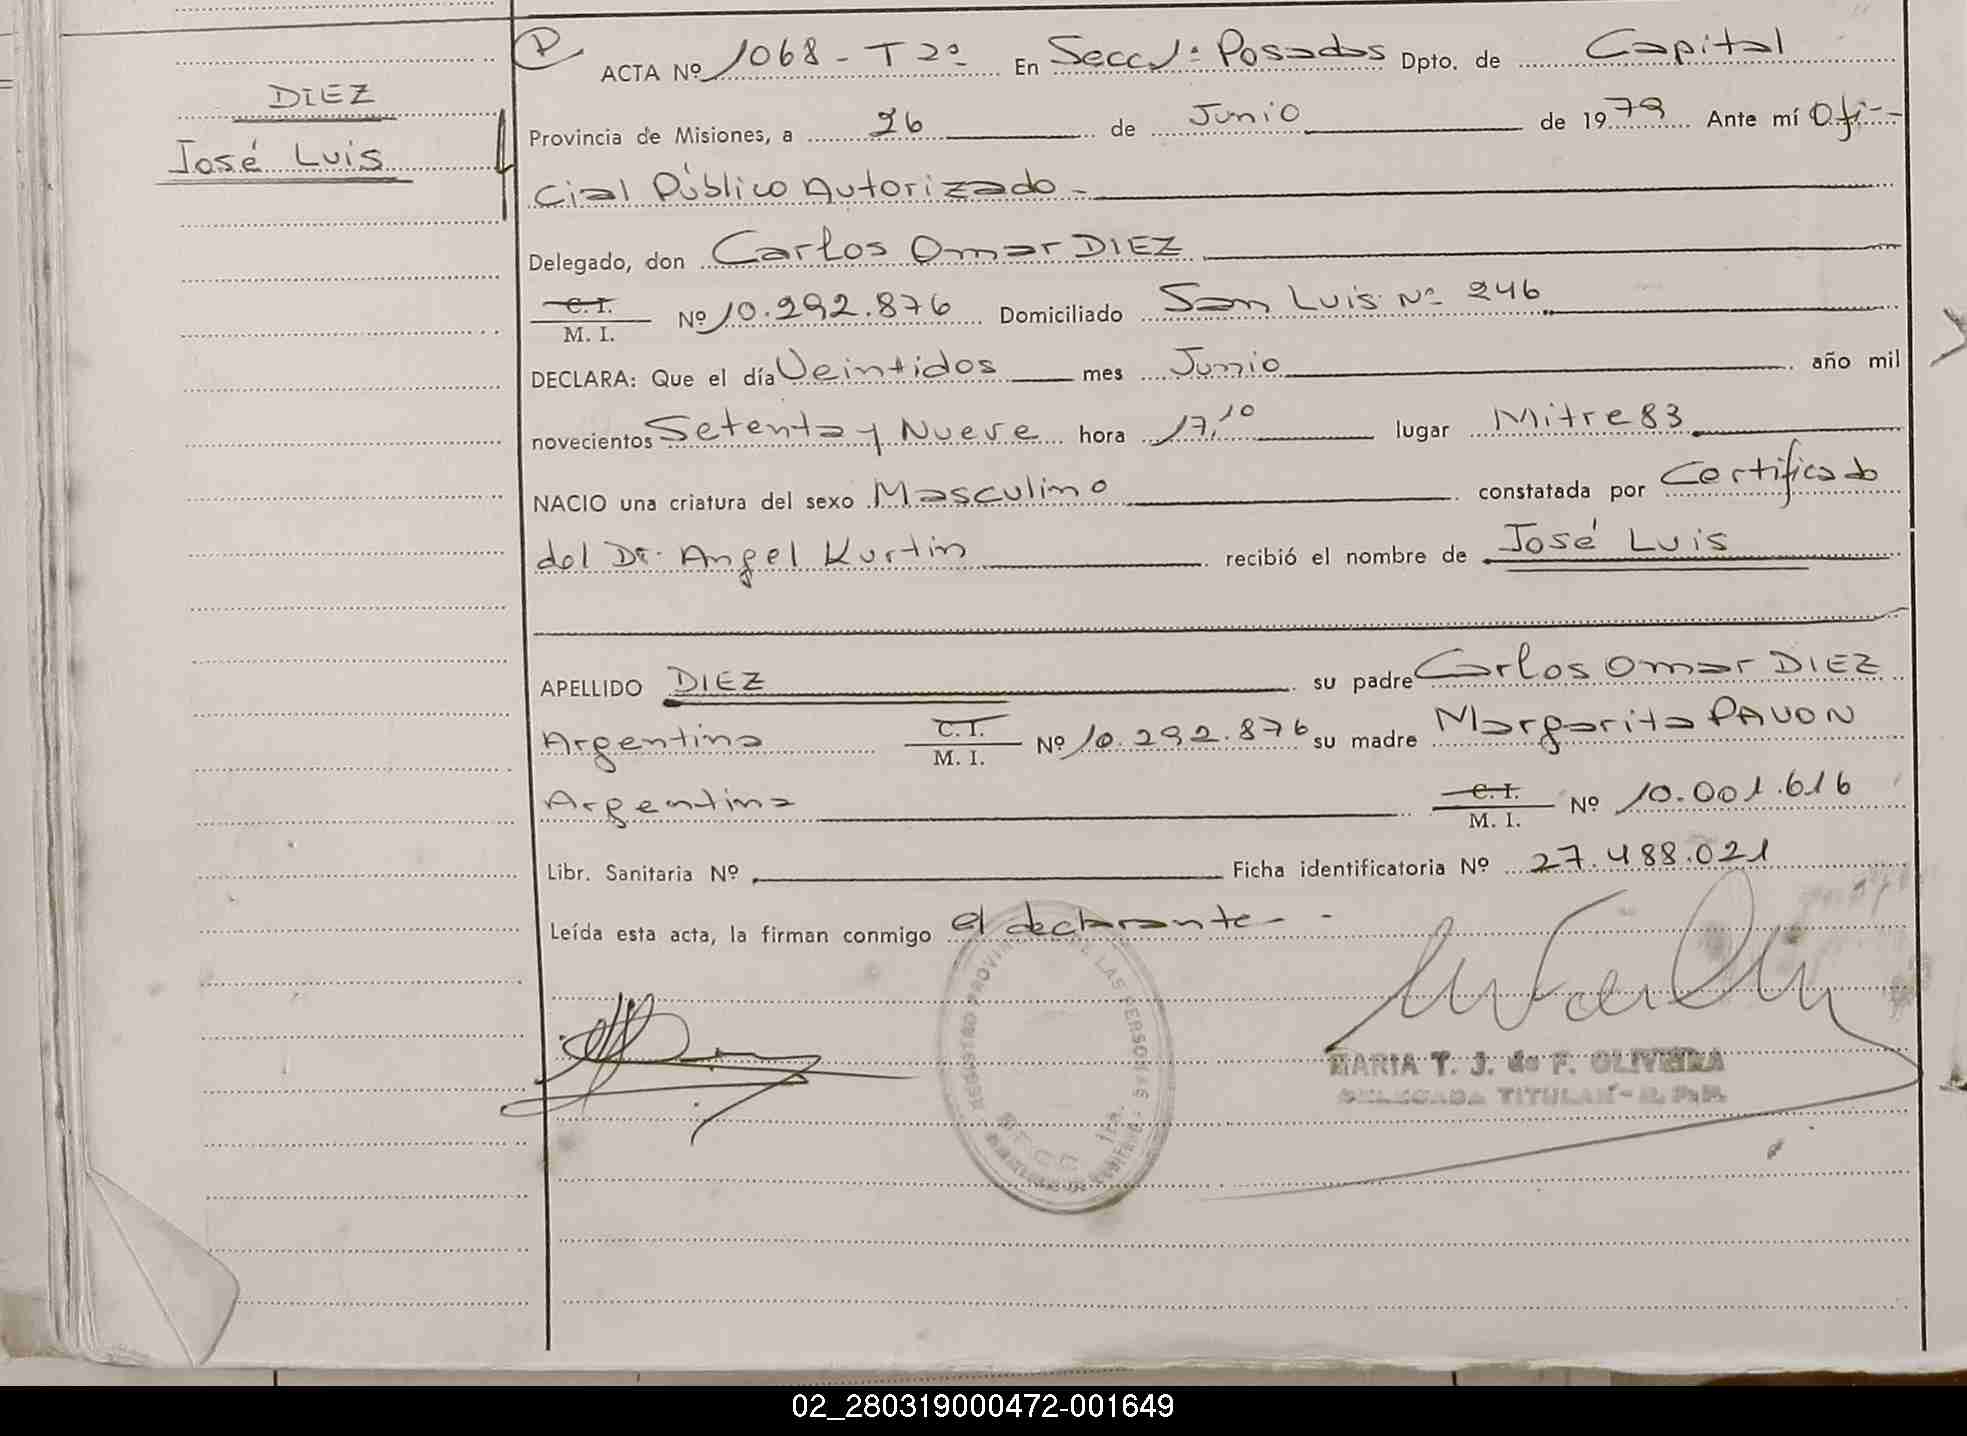 DIEZ
José Luis
D
ACTA Nº 1068 - T 2º En Secc 1ª Posadas Dpto. de Capital
Provincia de Misiones, a 26 de Junio de 1979 Ante mí Ofi-
cial Público Autorizado -
Delegado, don Carlos Omar DIEZ
C. I.
M. I.
Nº 10.292.876 Domiciliado San Luis Nº 246
DECLARA: Que el día Veintidos mes Junio año mil
novecientos Setenta y Nueve hora 17,10 lugar Mitre 83
NACIO una criatura del sexo Masculino constatada por Certificado
del Dr. Angel Kurtin recibió el nombre de José Luis
APELLIDO DIEZ su padre Carlos Omar DIEZ
Argentino C. I.
M. I.
Nº 10.292.876 su madre Margarita PAVON
Argentina C. I.
M. I.
Nº 10.001.616
Libr. Sanitaria Nº Ficha identificatoria Nº 27.488.021
Leída esta acta, la firman conmigo el declarante - -
REGISTRO PROVINCIAL DE LAS PERSONAS
SECC 1ra.
MARIA T. J. de F. OLIVEIRA
DELEGADA TITULAR - R. P. P.
02_280319000472-001649